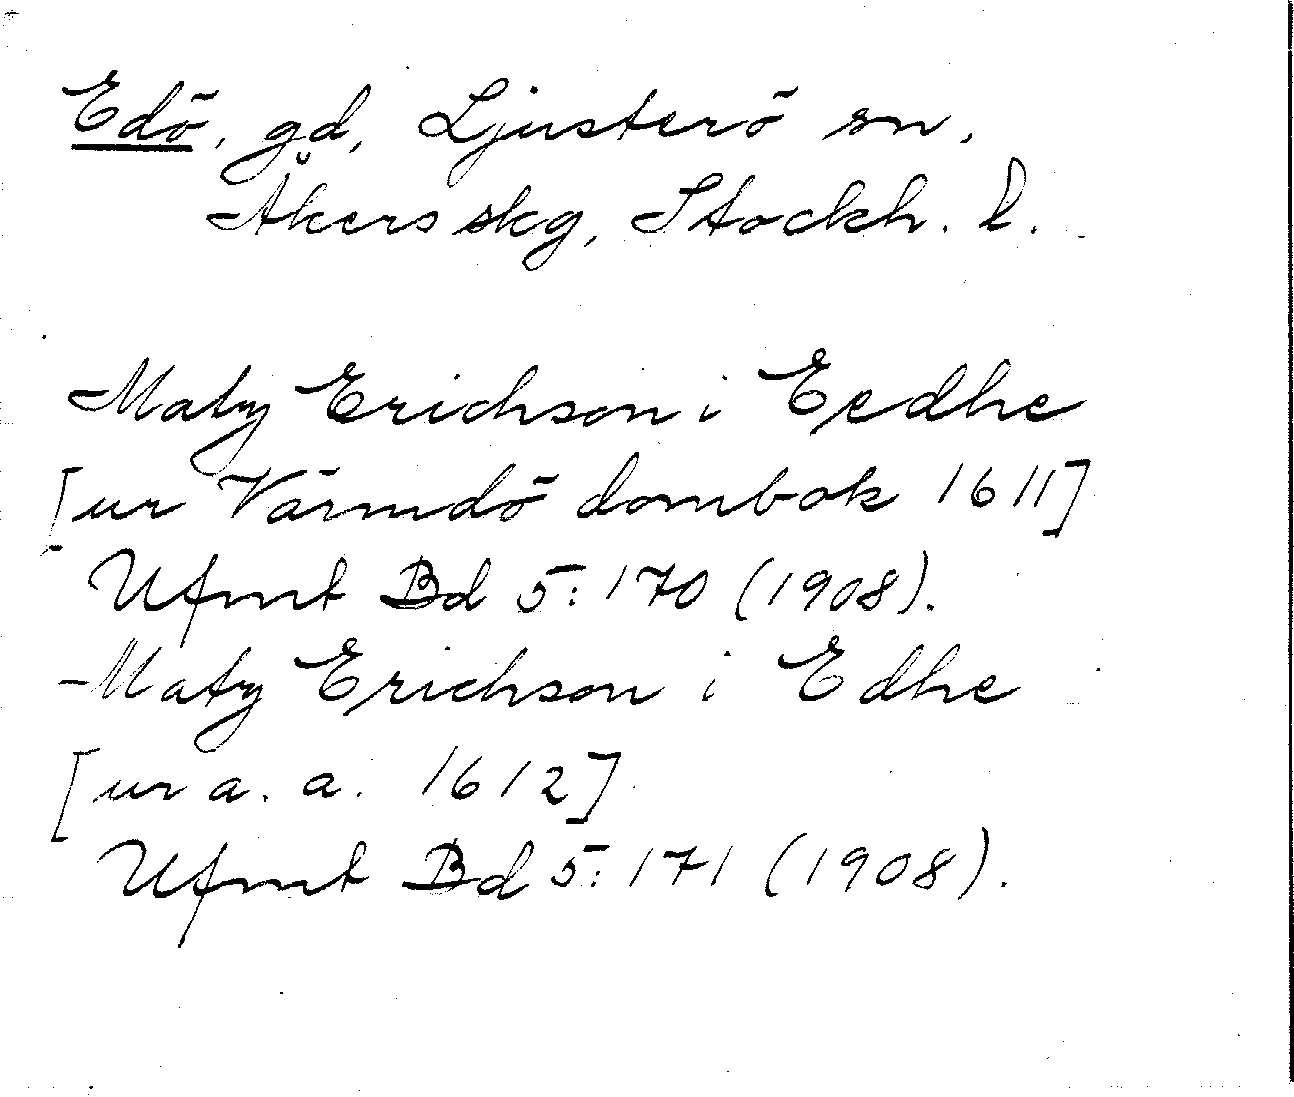 Edö, gd, Ljusterö sn,
Åkers skg, Stockh. l.
Matz Erichson i Eedhe
[ur Värmdö dombok 1611]
Ufmt Bd 5: 170 (1908).
Matz Erichson i Edhe
[ur a. a. 1612]
Ufmt Bd 5: 171 (1908).